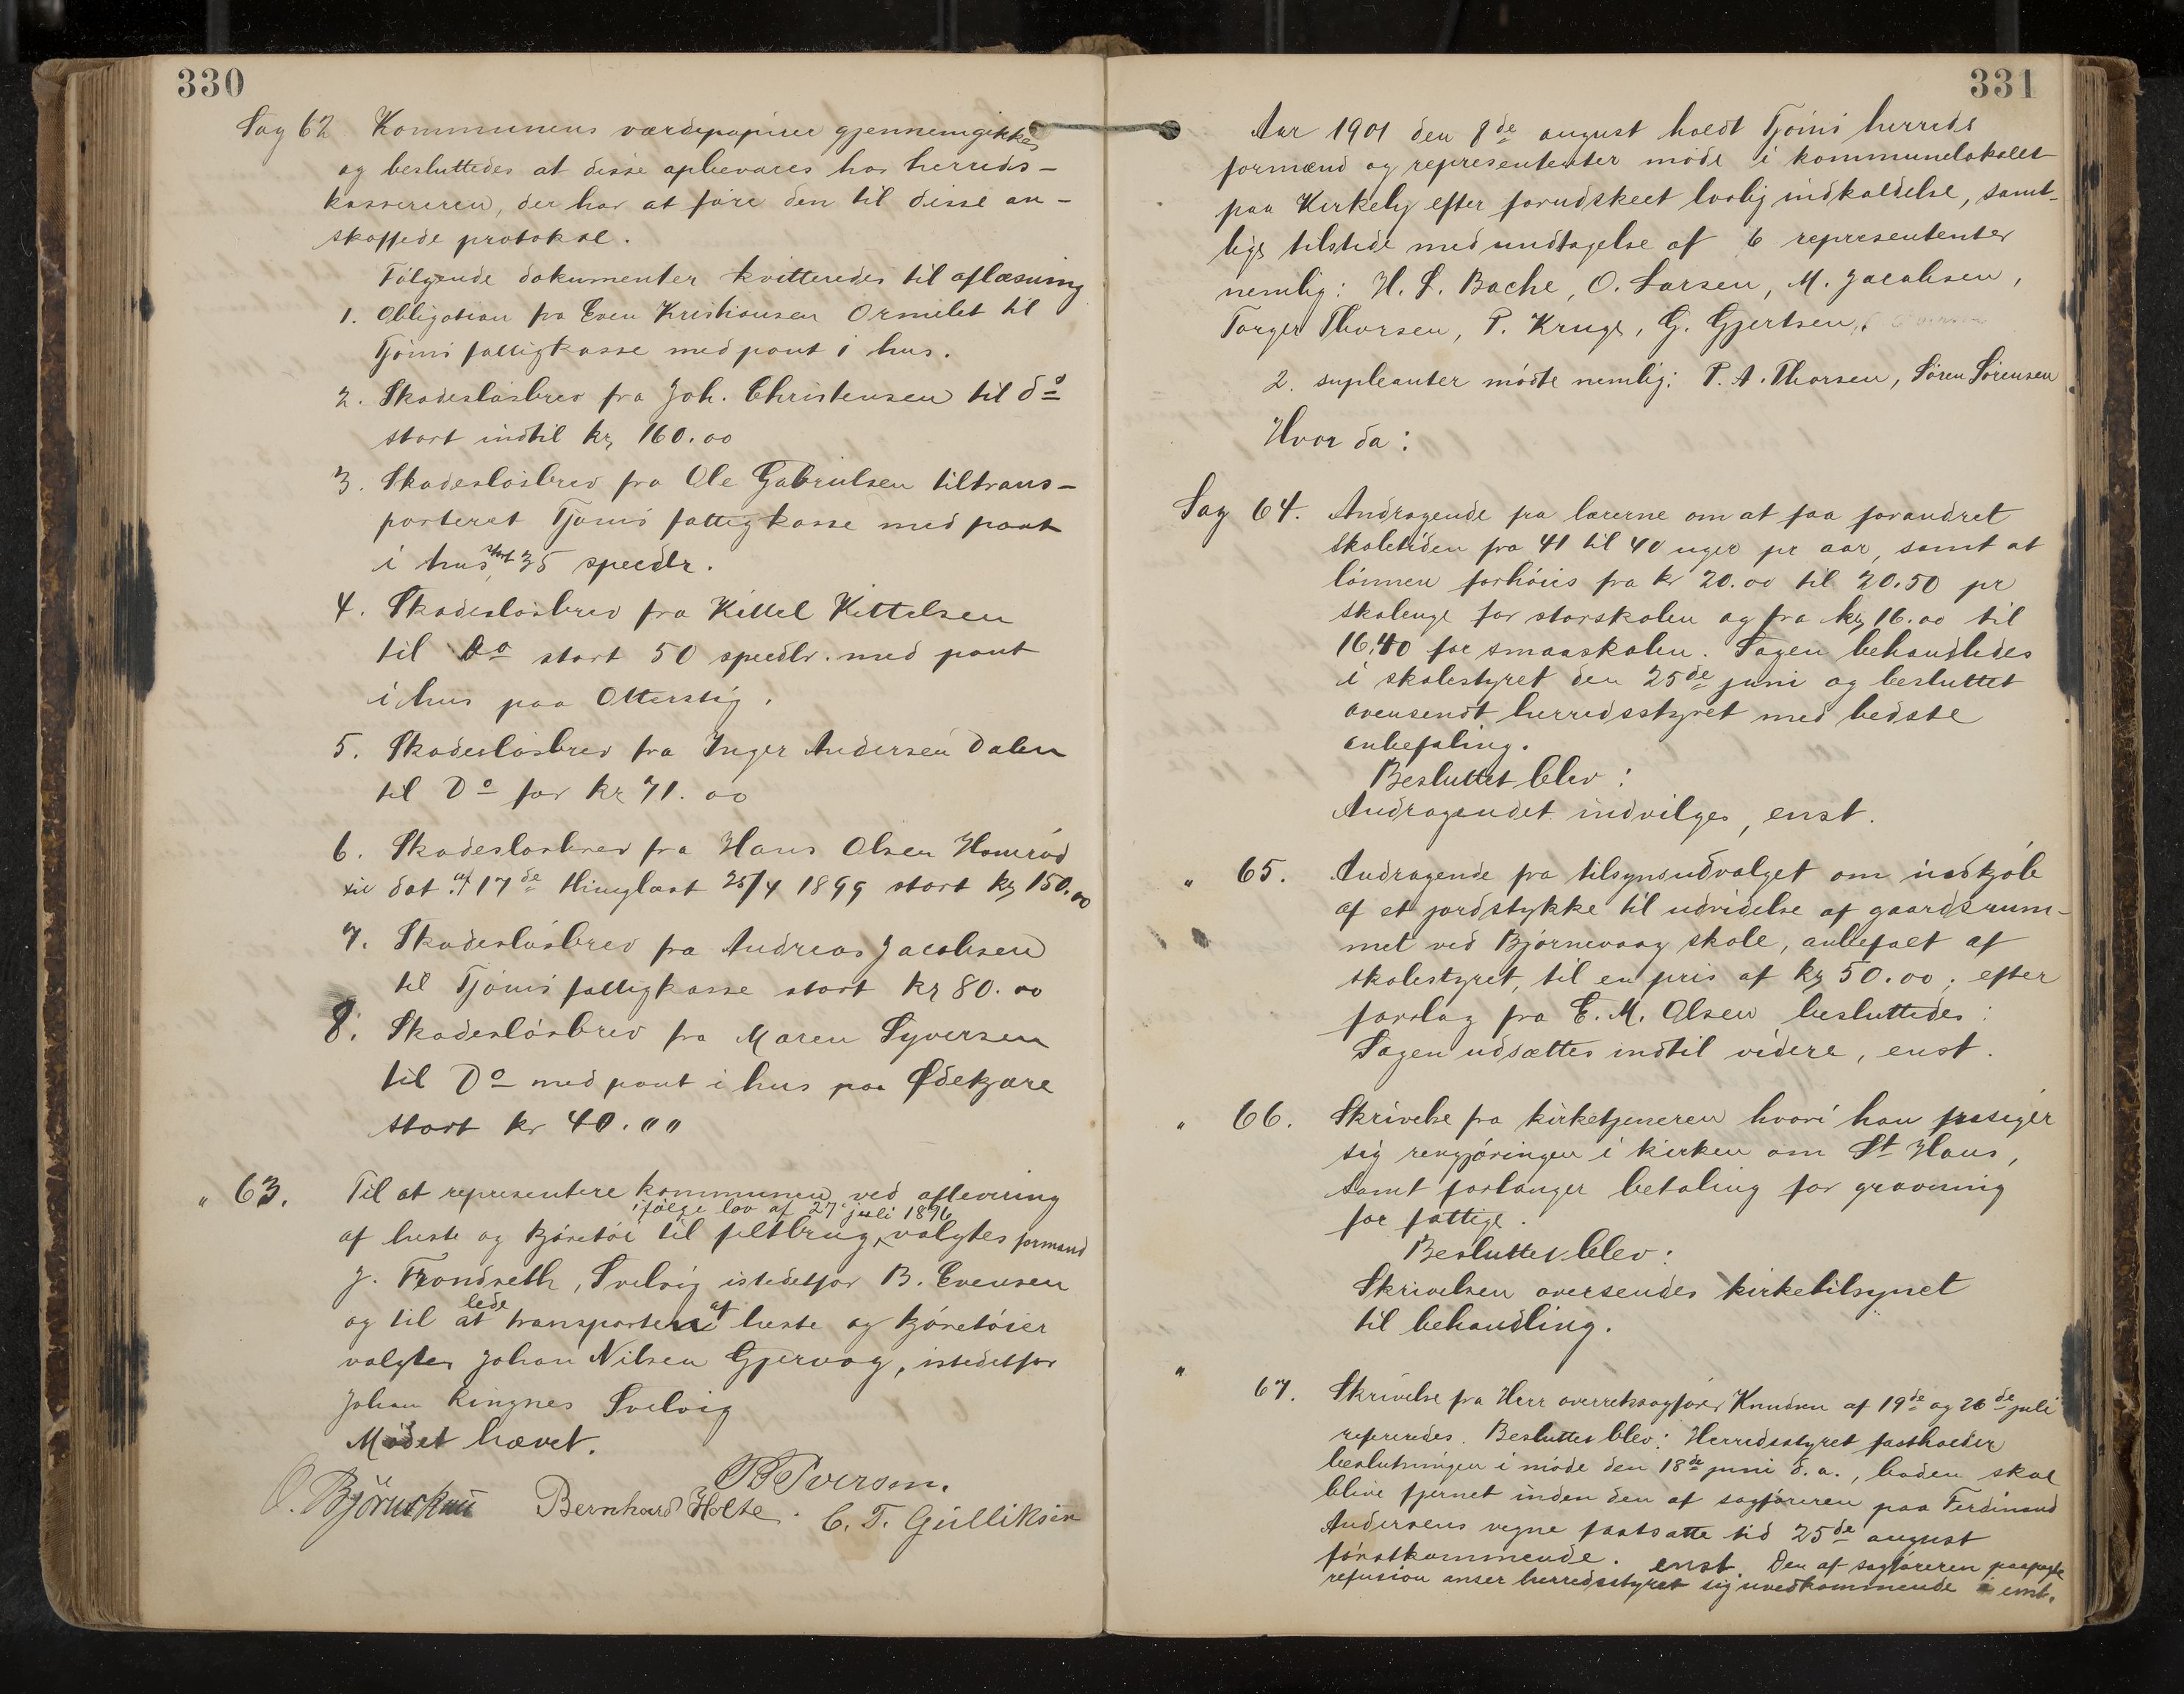 330
Sag 62 Kommunens værdipapirer gjennemgikkes
og besluttedes at disse opbevares hos herreds-
kassereren, der har at føre den til disse an-
skaffede protokol.
Følgende dokumenter kvitteredes til aflæsning
1. Obligation fra Even Kristiansen Ormelet til
Tjømø fattigkasse med pant i hus.
2. Skadesløsbrev fra Joh. Christensen til do
stort indtil kr 160.00
3. Skadesløsbrev fra Ole Gabrielsen tiltrans-
porteret Tjømø fattigkasse med pant
i hus, stort 35 specdlr.
4. Skadesløsbrev fra Kittel Kittelsen
til Do stort 50 specdlr. med pant
i hus paa Otterstig.
5. Skadesløsbrev fra Inger Andersen Dalen
til Do for kr 71.00
6. Skadesløsbrev fra Hans Olsen Honerød
til dat af 17de thinglæst 25/4 1899 stort kr 150.00
7. Skadesløsbrev fra Andreas Jacobsen
til Tjømø fattigkasse stort kr 80.00
8. Skadesløsbrev fra Maren Syversen
til Do med pant i hus paa Ødekjære
stort kr 40.00
" 63. Til at representere kommunen ved aflevering
ifølge lov af 27 juli 1896
af heste og kjøretøi til feltbrug, valgtes formand
J. Trondseth, Svelvig istedetfor B. Evensen
og til at lede transporten af heste og kjøretøier
valgtes Johan Nilsen Gjervog, istedetfor
Johan Ringnes Svelvig
Mødet hævet.
O. Bjørnskau Bernhard Holte. B Iversen.
C. T. Gulliksen
331
Aar 1901 den 8de august holdt Tjømø herreds
formænd og represententer møde i kommunelokalet
paa Kirkely efter forudskeet lovlig indkaldelse, samt-
lige tilstede med undtagelse af 6 represententer
nemlig: H. L. Bache, O. Larsen, M. Jacobsen,
Torger Thorsen, P. Kruge, G. Gjertsen,
2. supleanter mødte nemlig: P. A. Thorsen, Søren Sørensen
Hvor da:
Sag 64. Andragende fra lærerne om at faa forandret
skoletiden fra 41 til 40 uger pr aar, samt at
lønnen forhøies fra kr 20.00 til 20.50 pr
skoleuge for storskolen og fra kr 16.00 til
16.40 for smaaskolen. Sagen behandledes
i skolestyret den 25de juni og besluttet
oversendt herredsstyret med bedste
anbefaling.
Besluttet blev:
Andragendet indvilges, enst.
" 65. Andragende fra tilsynsudvalget om indkjøb
af et jordstykke til udvidelse af gaardsrum-
met ved Bjørnevaag skole, anbefalt af
skolestyret, til en pris af kr 50.00; efter
forslag fra E. M. Olsen besluttedes:
Sagen udsættes indtil videre, enst.
" 66. Skrivelse fra kirketjeneren hvori han frasiger
sig rengjøringen i kirken om St Hans,
samt forlanger betaling for gravning
for fattige.
Besluttet blev:
Skrivelsen oversendes kirketilsynet
til behandling.
" 67. Skrivelse fra Herr overretssagfører Knudsen af 19de og 26de juli
refereredes. Besluttet blev: Herredsstyret fastholder
beslutningen i møde den 18de juni d. a., boden skal
blive fjernet inden den af sagføreren paa Ferdinand
Andersens vegne fastsatte tid 25de august
førstkommende. enst. Den af sagføreren
refusion anser herredsstyret sig uvedkommende enst.